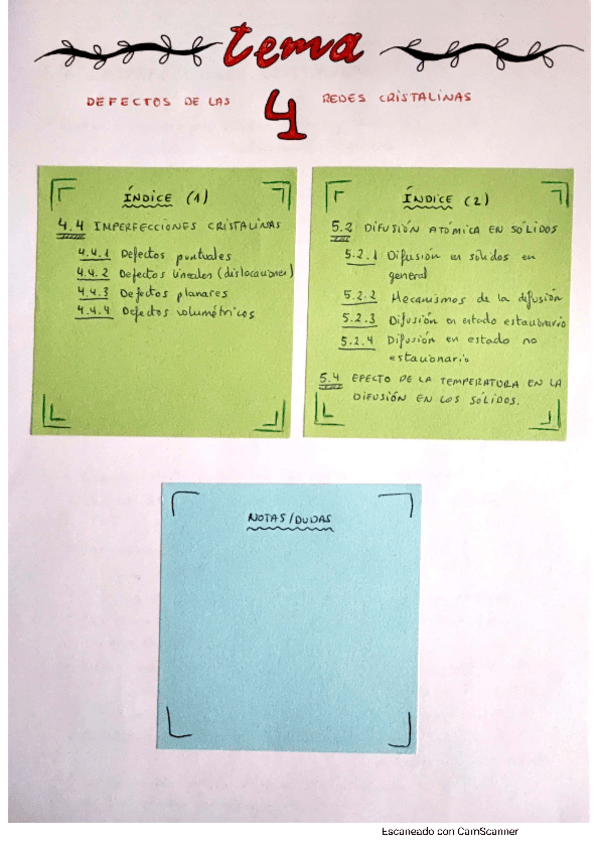 tema
DEFECTOS DE LAS 4 REDES CRISTALINAS
ÍNDICE (1)
4.4 IMPERFECCIONES CRISTALINAS
4.4.1 Defectos puntuales
4.4.2 Defectos lineales (dislocaciones)
4.4.3 Defectos planares
4.4.4 Defectos volumétricos
ÍNDICE (2)
5.2 DIFUSIÓN ATÓMICA EN SÓLIDOS
5.2.1 Difusión en sólidos en
general
5.2.2 Mecanismos de la difusión
5.2.3 Difusión en estado estacionario
5.2.4 Difusión en estado no
estacionario
5.4 EFECTO DE LA TEMPERATURA EN LA
DIFUSIÓN EN LOS SÓLIDOS.
NOTAS/DUDAS
Escaneado con CamScanner